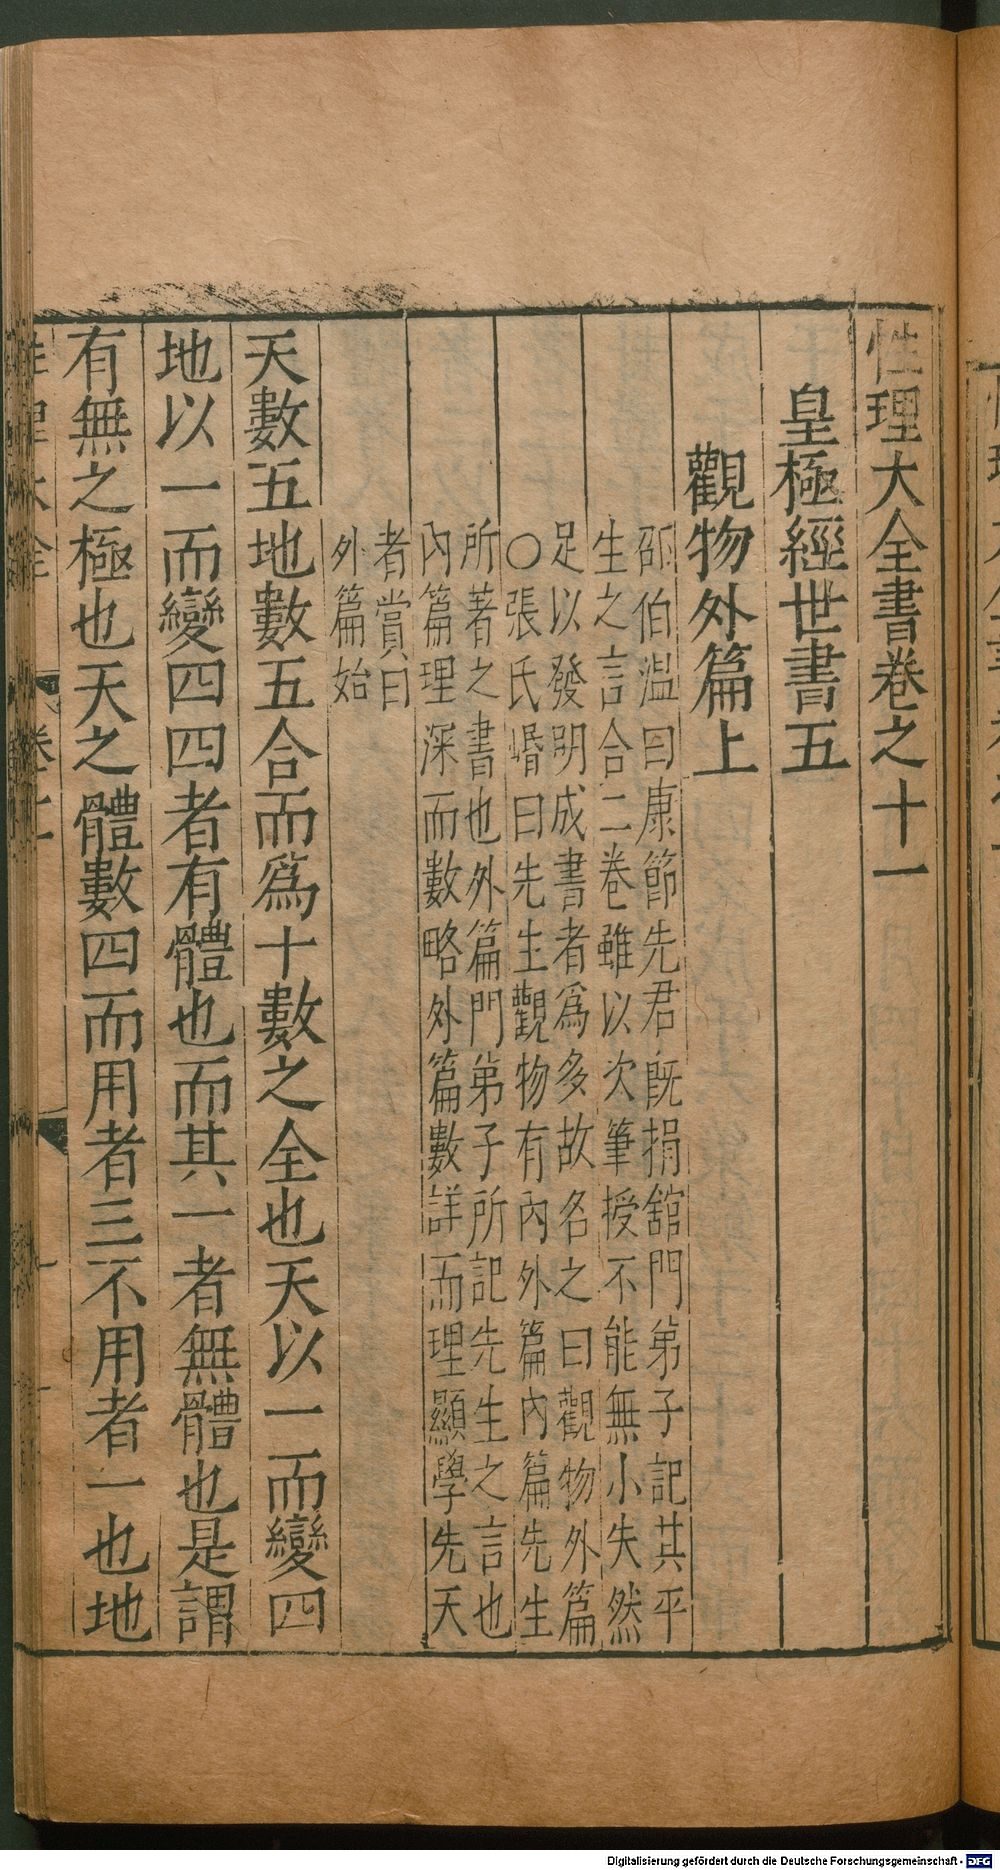 性理大全書卷之十一
皇極經世書五
觀物外篇上
邵伯温曰康節先君既捐舘門弟子記其平
生之言合二卷雖以次筆授不能無小失然
足以發明成書者爲多故名之曰觀物外篇
○張氏㟭曰先生觀物有內外篇內篇先生
所著之書也外篇門弟子所記先生之言也
內篇理深而數略外篇數詳而理顯學先天
者賞曰
外篇始
天數五地數五合而爲十數之全也天以一而變四
地以一而變四四者有體也而其一者無體也是謂
有無之極也天之體數四而用者三不用者一也地
Digitalisierung gefördert durch die Deutsche Forschungsgemeinschaft - DFG